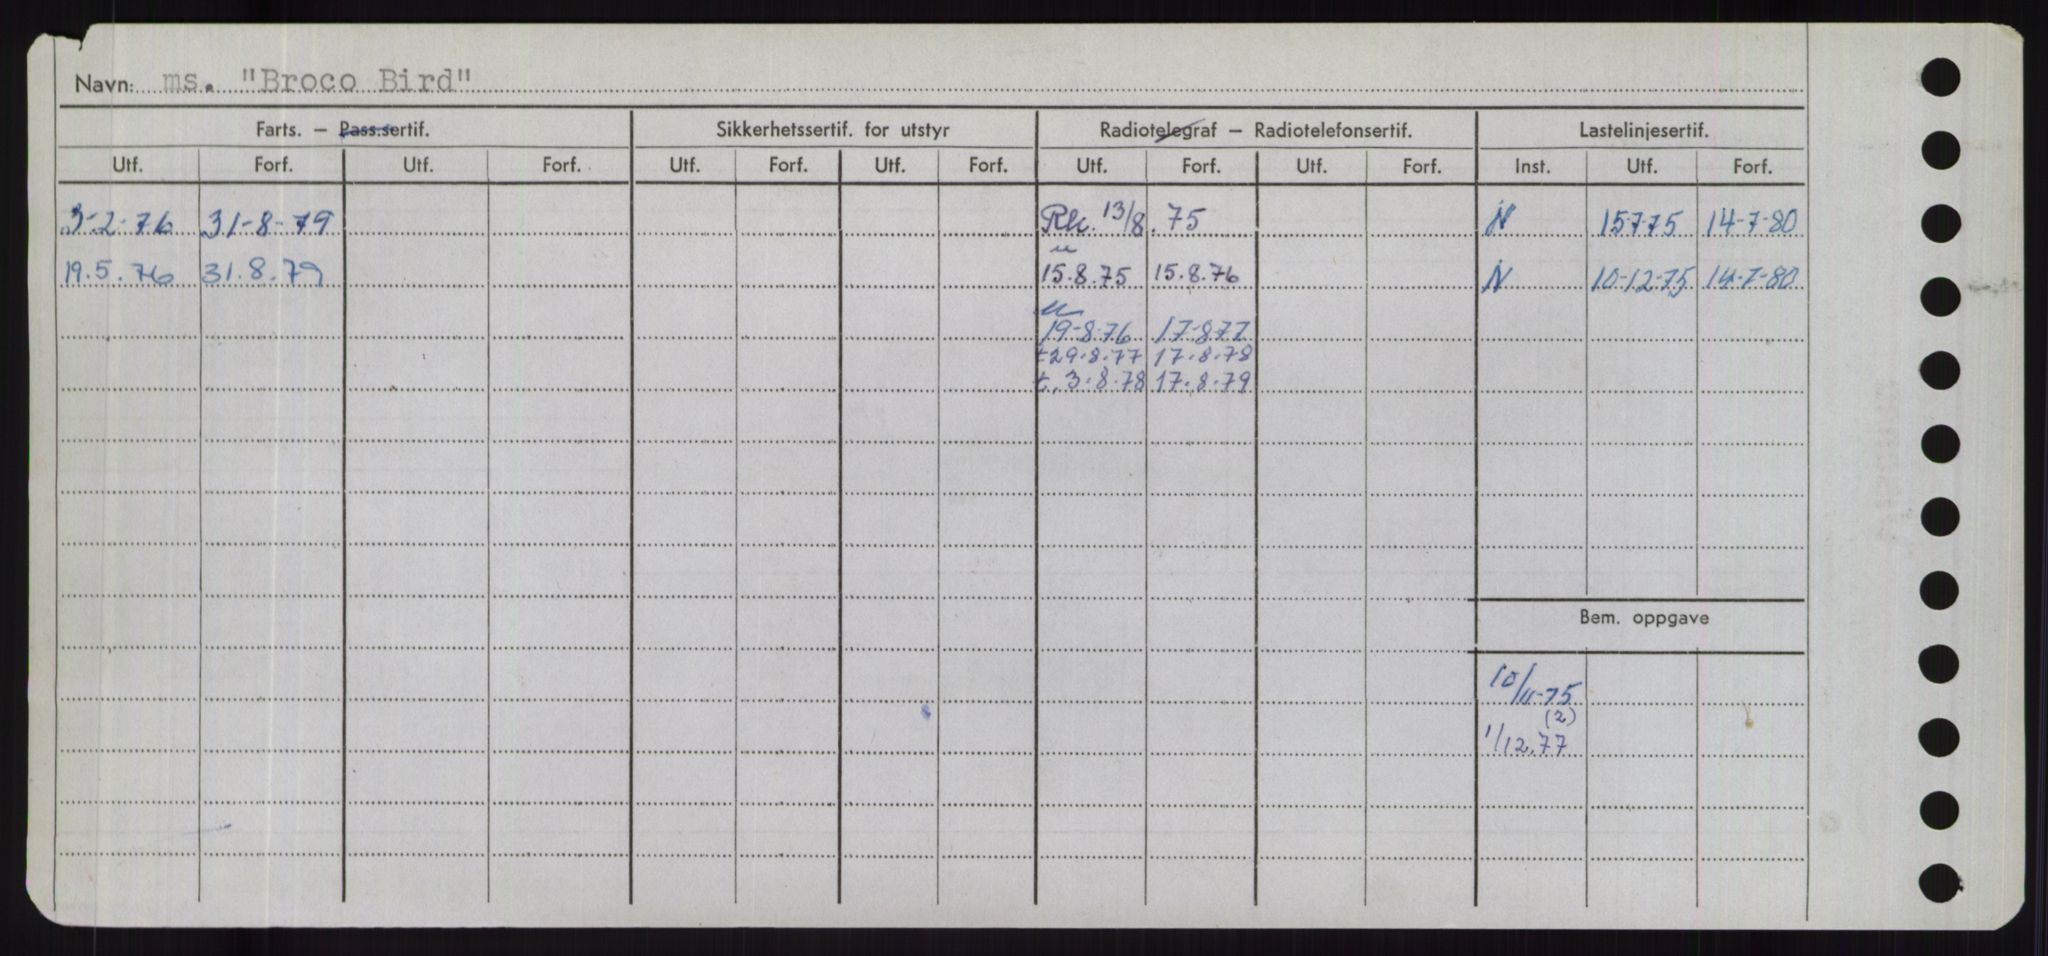 Navn: ms. "Broco Bird"
Farts. – Pass.sertif. Sikkerhetssertif. for utstyr Radiotelegraf – Radiotelefonsertif. Lastelinjesertif.
Utf. Forf. Utf. Forf. Utf. Forf. Utf. Forf. Utf. Forf. Utf. Forf. Inst. Utf. Forf.
3-2-76 31-8-79 Rk. 13/8.75 N 15775 14-7-80
u
19.5.76 31.8.79 15.8.75 15.8.76 N 10-12-75 14-7-80
u
19-8-76 17-877
t29.8.77 17.8.78
t. 3.8.78 17.8.79
Bem. oppgave
10/11-75
(2)
1/12.77